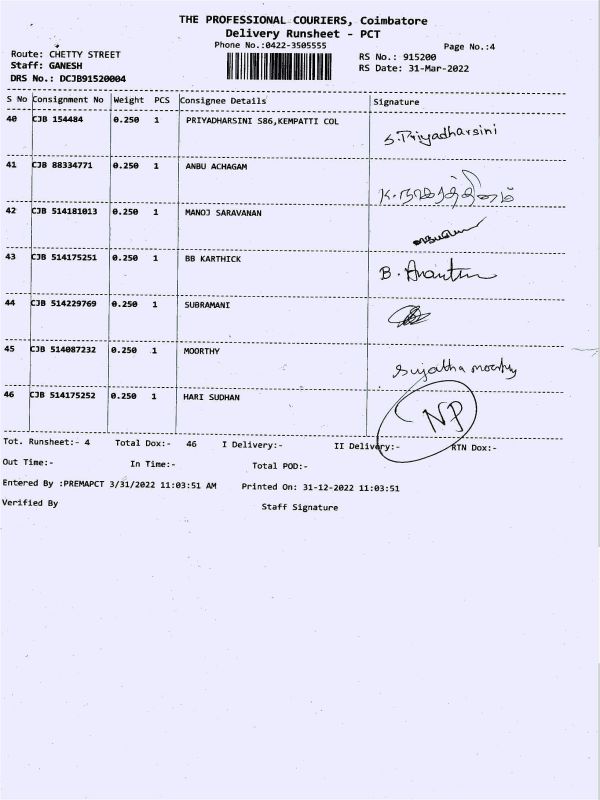 THE PROFESSIONAL COURIERS, Coimbatore
Delivery Runsheet - PCT
Phone No.:0422-3505555 Page No.:4
Route: CHETTY STREET RS No.: 915200
Staff: GANESH RS Date: 31-Mar-2022
DRS No.: DCJB91520004
S No Consignment No Weight PCS Consignee Details Signature
40 CJB 154484 0.250 1 PRIYADHARSINI S86,KEMPATTI COL S.Priyadharsini
41 CJB 88334771 0.250 1 ANBU ACHAGAM
42 CJB 514181013 0.250 1 MANOJ SARAVANAN
43 CJB 514175251 0.250 1 BB KARTHICK B.
44 CJB 514229769 0.250 1 SUBRAMANI
45 CJB 514087232 0.250 1 MOORTHY Sujatha moorthy
46 CJB 514175252 0.250 1 HARI SUDHAN NP
Tot. Runsheet:- 4 Total Dox:- 46 I Delivery:- II Delivery:- RTN Dox:-
Out Time:- In Time:- Total POD:-
Entered By :PREMAPCT 3/31/2022 11:03:51 AM Printed On: 31-12-2022 11:03:51
Verified By Staff Signature